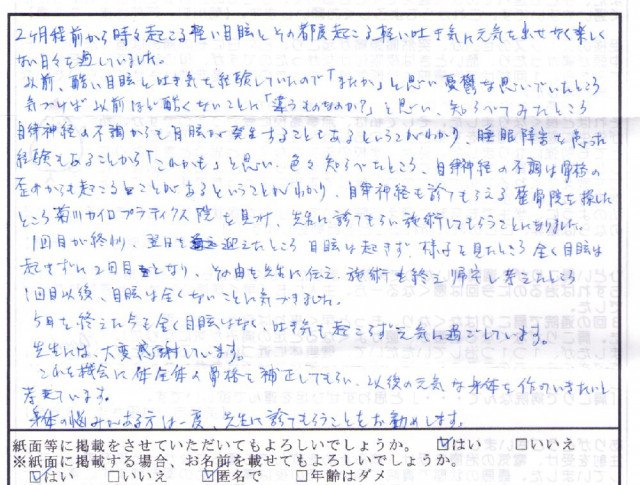 2ヶ月程前から時々起こる軽い目眩とその都度起こる軽い吐き気に元気を出せなく楽しく
ない日々を過していました。
以前、酷い目眩と吐き気を経験していたので「またか」と思い憂鬱な思いでいたところ
気づけば以前ほど酷くないことに「違うものなのか?」と思い、知らべてみたところ
自律神経の不調からも目眩が発生することもあるということがわかり、睡眠障害を患った
経験もあることから「これかも」と思い、色々知らべたところ、自律神経の不調は骨格の
歪みからも起こることがあるということがわかり、自律神経も診てもらえる整骨院を探した
ところ菊川カイロプラティクス院を見つけ、先生に診てもらい施術してもらうことになりました。
1回目が終わり、翌日を迎えたところ目眩は起きず、様子を見たところ全く目眩は
起きずに2回目となり、その由を先生に伝え、施術も終え帰宅し考えたところ
1回目以後、目眩は全くないことに気づきました。
5回を終えた今も全く目眩はなく、吐き気も起こらず元気に過ごしています。
先生には、大変感謝しています。
これを機会に体全体の骨格を補正してもらい、以後の元気な身体を作っていきたいと
考えています。
身体の悩みがある方は一度、先生に診てもらうことをお勧めします。
紙面等に掲載をさせていただいてもよろしいでしょうか。 ☑はい □いいえ
※紙面に掲載する場合、お名前を載せてもよろしいでしょうか。
☑はい □いいえ ☑匿名で □年齢はダメ